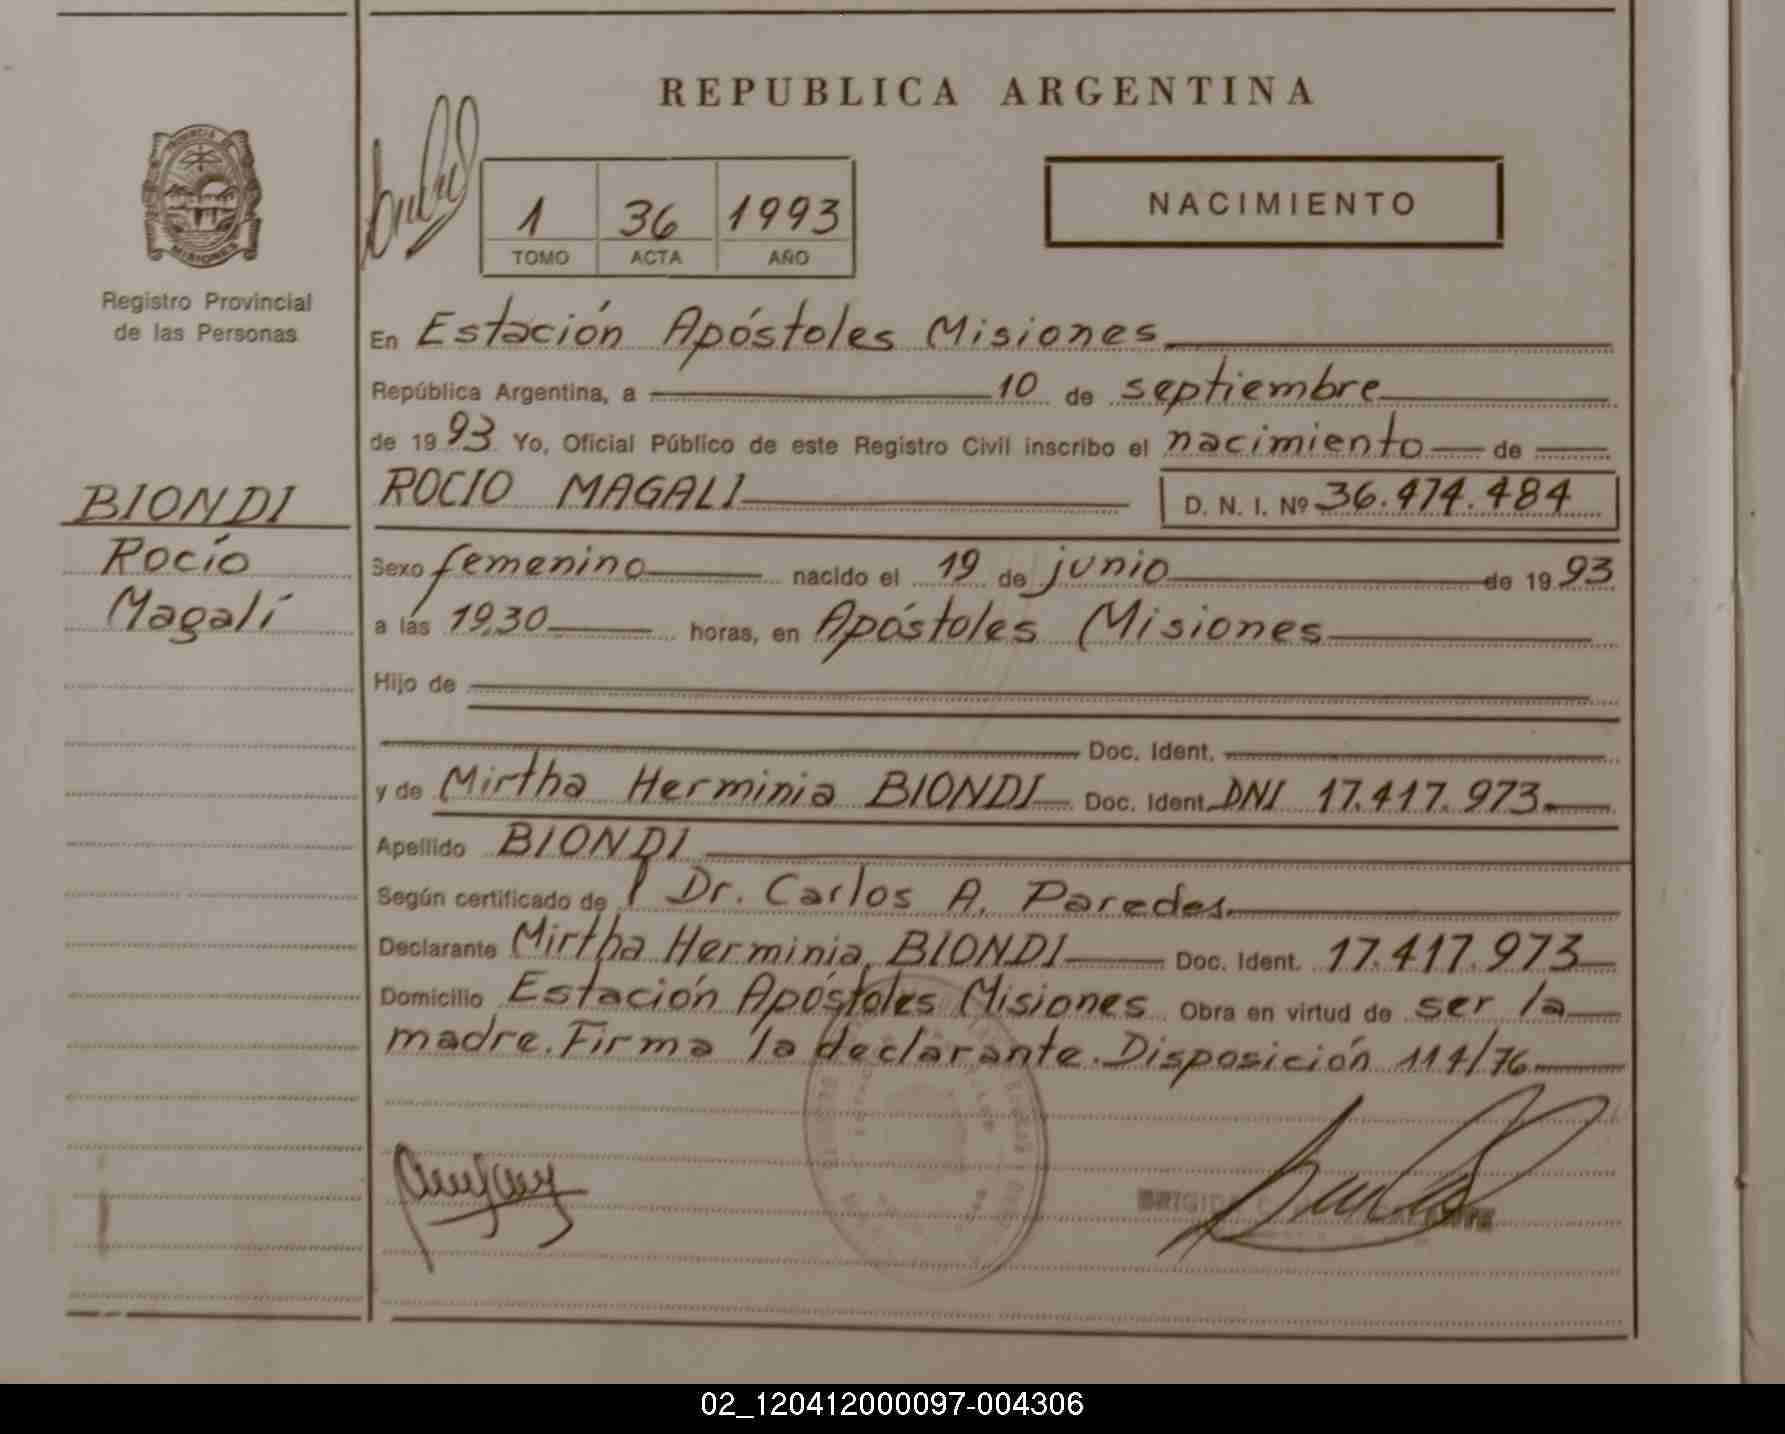 REPUBLICA ARGENTINA
PROVINCIA
MISIONES
Registro Provincial
de las Personas
1 36 1993
TOMO ACTA AÑO
NACIMIENTO
En Estación Apóstoles Misiones
República Argentina, a 10 de septiembre
de 1993 Yo, Oficial Público de este Registro Civil inscribo el nacimiento de
ROCIO MAGALI D. N. I. Nº 36.474.484
BIONDI
Rocío
Magalí
Sexo femenino nacido el 19 de junio de 1993
a las 19,30 horas, en Apóstoles Misiones
Hijo de
Doc. Ident.
y de Mirtha Herminia BIONDI Doc. Ident. DNI 17.417.973
Apellido BIONDI
Según certificado de Dr. Carlos A. Paredes
Declarante Mirtha Herminia BIONDI Doc. Ident. 17.417.973
Domicilio Estación Apóstoles Misiones Obra en virtud de ser la
madre. Firma la declarante. Disposición 114/76
02_120412000097-004306